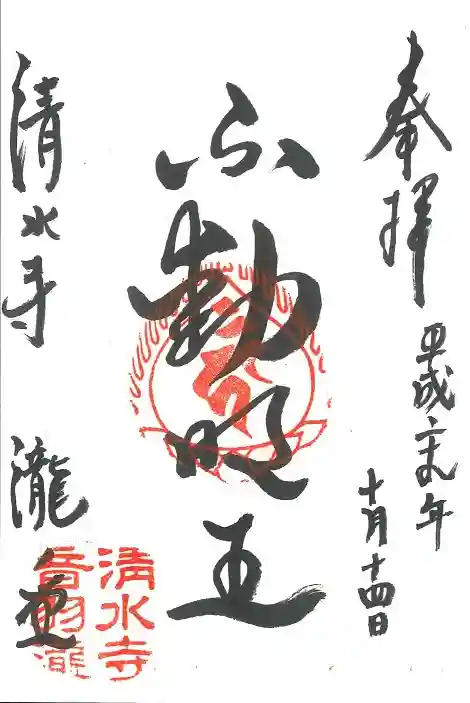 奉拝
平成二 年
十月十四日
不動明王
清水寺 瀧堂
清水寺
音羽瀧